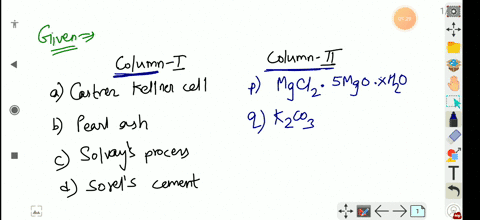 Given ⇒
Column-I
Column-II
a) Castner Kellner cell
b) Pearl ash
c) Solvay's process
d) Sorel's cement
p) MgCl2 · 5MgO · xH2O
q) K2CO3
1